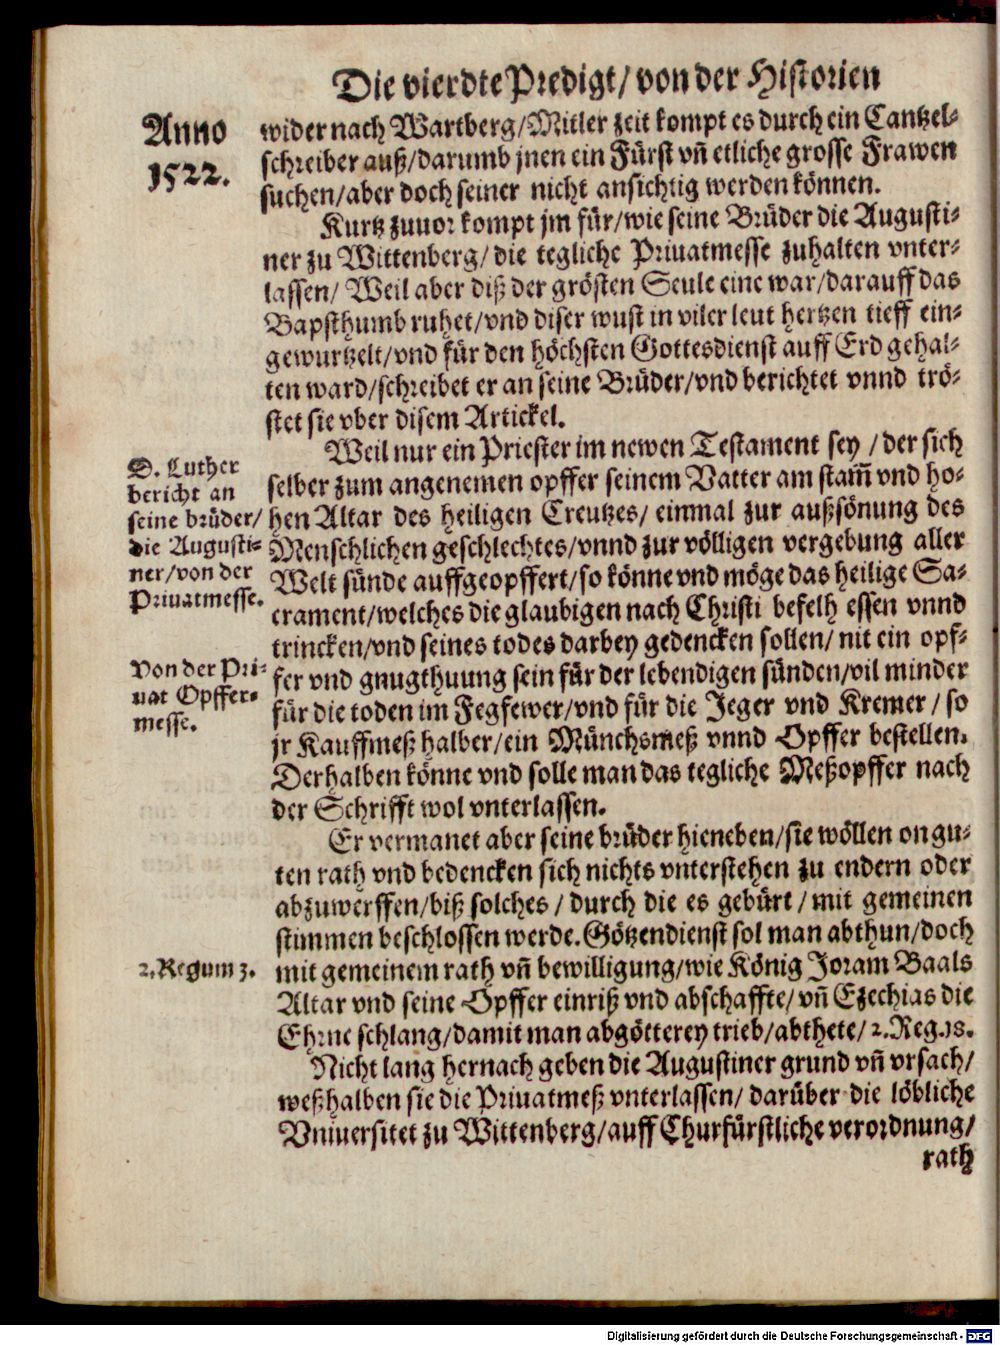 Die vierdte Predigt/ von der Historien
Anno
1522.
wider nach Wartberg/Mitler zeit kompt es durch ein Cantzel-
schreiber auß/darumb jnen ein Fürst vñ etliche grosse Frawen
suchen/aber doch seiner nicht ansichtig werden können.
Kurtz zuuor kompt jm für/wie seine Brüder die Augusti-
ner zu Wittenberg/ die tegliche Priuatmesse zuhalten vnter-
lassen/ Weil aber diß der grösten Seule eine war/darauff das
Bapsthumb ruhet/vnd diser wust in viler leut hertzen tieff ein-
gewurtzelt/vnd für den höchsten Gottesdienst auff Erd gehal-
ten ward/schreibet er an seine Brüder/vnd berichtet vnnd trö-
stet sie vber disem Artickel.
D. Luther
bericht an
seine brüder/
die Augusti-
ner/von der
Priuatmesse.
Weil nur ein Priester im newen Testament sey /der sich
selber zum angenemen opffer seinem Vatter am stam̃ vnd ho-
hen Altar des heiligen Creutzes/ einmal zur außsönung des
Menschlichen geschlechtes/vnnd zur völligen vergebung aller
Welt sünde auffgeopffert/so könne vnd möge das heilige Sa-
crament/welches die glaubigen nach Christi befelh essen vnnd
trincken/vnd seines todes darbey gedencken sollen/ nit ein opf-
Von der Pri-
uat Opffer-
messe.
fer vnd gnugthuung sein für der lebendigen sünden/vil minder
für die toden im Fegfewer/vnd für die Jeger vnd Kremer/ so
jr Kauffmeß halber/ein Münchsmeß vnnd Opffer bestellen.
Derhalben könne vnd solle man das tegliche Meßopffer nach
der Schrifft wol vnterlassen.
Er vermanet aber seine brüder hieneben/sie wöllen on gu-
ten rath vnd bedencken sich nichts vnterstehen zu endern oder
abzuwerffen/biß solches / durch die es gebürt / mit gemeinen
stimmen beschlossen werde. Götzendienst sol man abthun/doch
2. Regum 3.
mit gemeinem rath vñ bewilligung/wie König Joram Baals
Altar vnd seine Opffer einriß vnd abschaffte/ vñ Ezechias die
Ehrne schlang/damit man abgötterey trieb/abthete/ 2. Reg. 18.
Nicht lang hernach geben die Augustiner grund vñ vrsach/
weßhalben sie die Priuatmeß vnterlassen/ darüber die löbliche
Vniuersitet zu Wittenberg/auff Churfürstliche verordnung/
rath
Digitalisierung gefördert durch die Deutsche Forschungsgemeinschaft - DFG